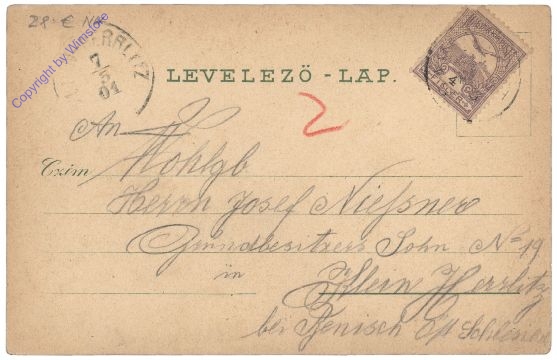 28.- € N
Copyright by Wimstore
HERRLITZ
7/5
01
LEVELEZŐ - LAP.
2
An
Czim
Wohlgb
Herrn Josef Nießner
Grundbesitzers Sohn No 19
in
Klein Herrlitz
bei Benisch Öst Schlesien